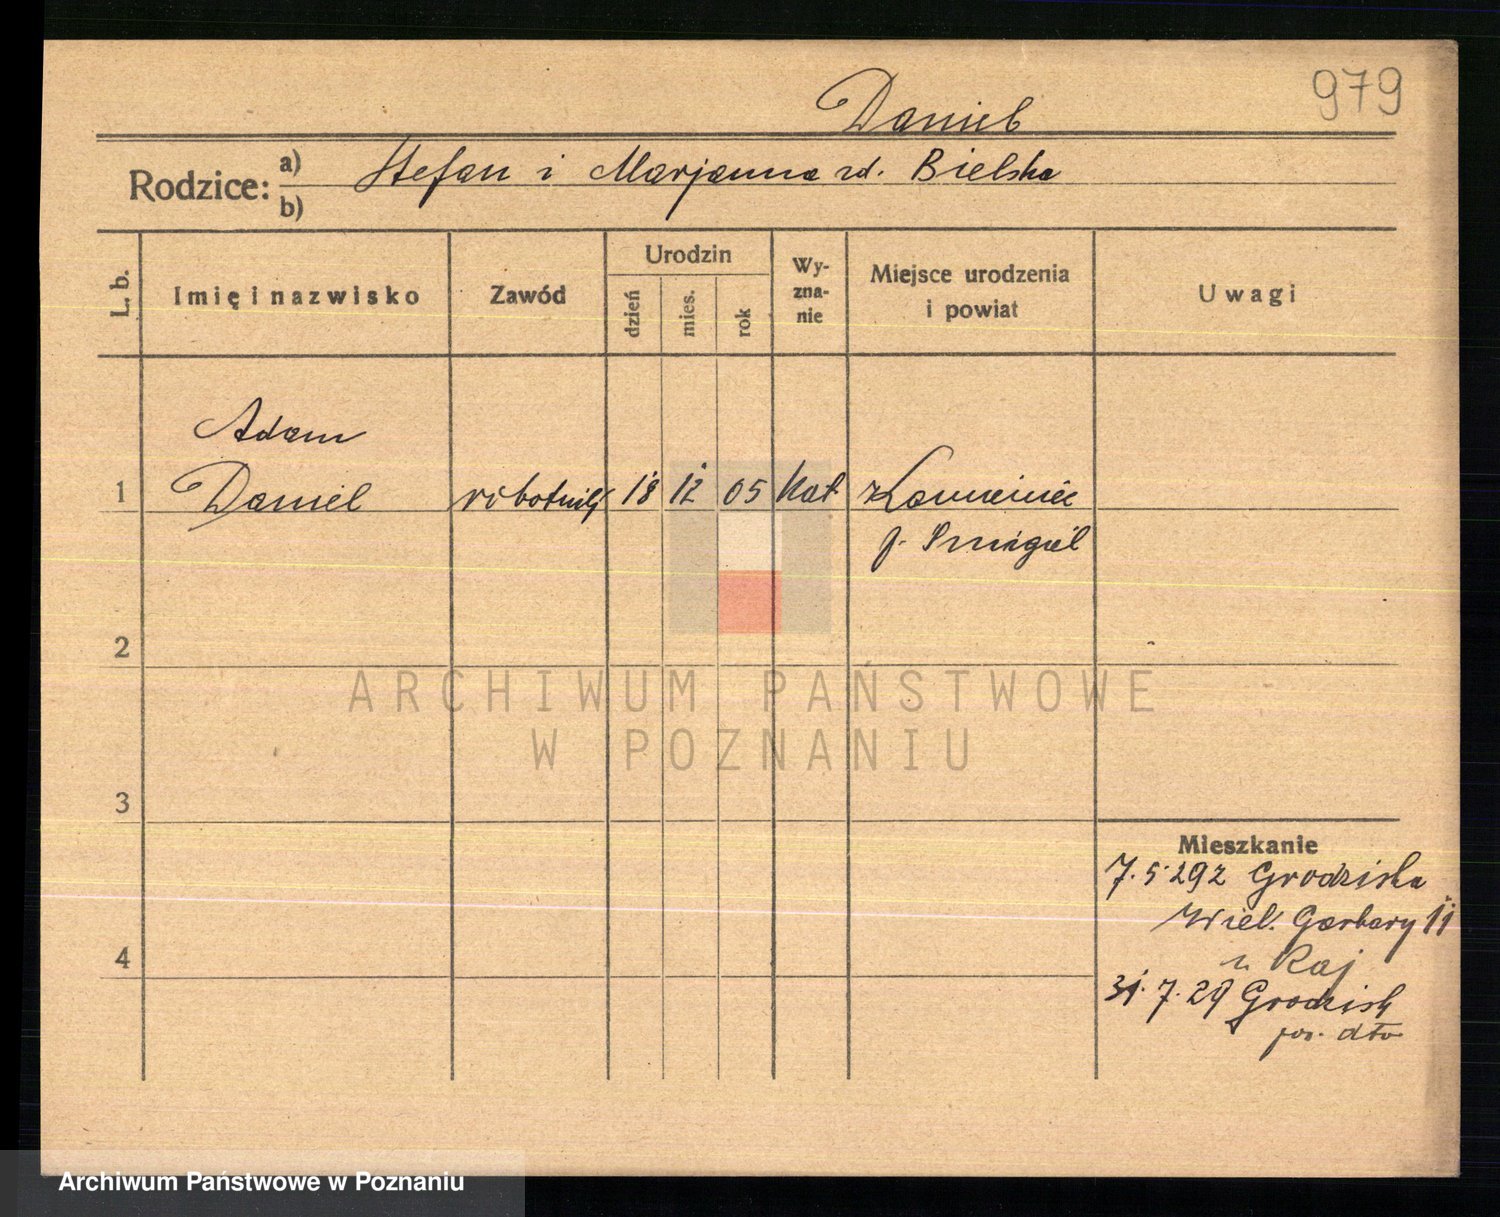 979
Daniel
Rodzice: a) Stefan i Marjanna zd. Bielska
b)
L. b.
Imię i nazwisko
Zawód
Urodzin
dzień
mies.
rok
Wy-
zna-
nie
Miejsce urodzenia
i powiat
Uwagi
Adam
1 Daniel robotnik 18 12 05 kat Kamieniec
p. Smigiel
2
ARCHIWUM PAŃSTWOWE
W POZNANIU
3
Mieszkanie
7.5.29 z Grodziska
Wiel. Garbary 11
u Raj
4
31.7.29 Grodzisk
pow. dto
Archiwum Państwowe w Poznaniu